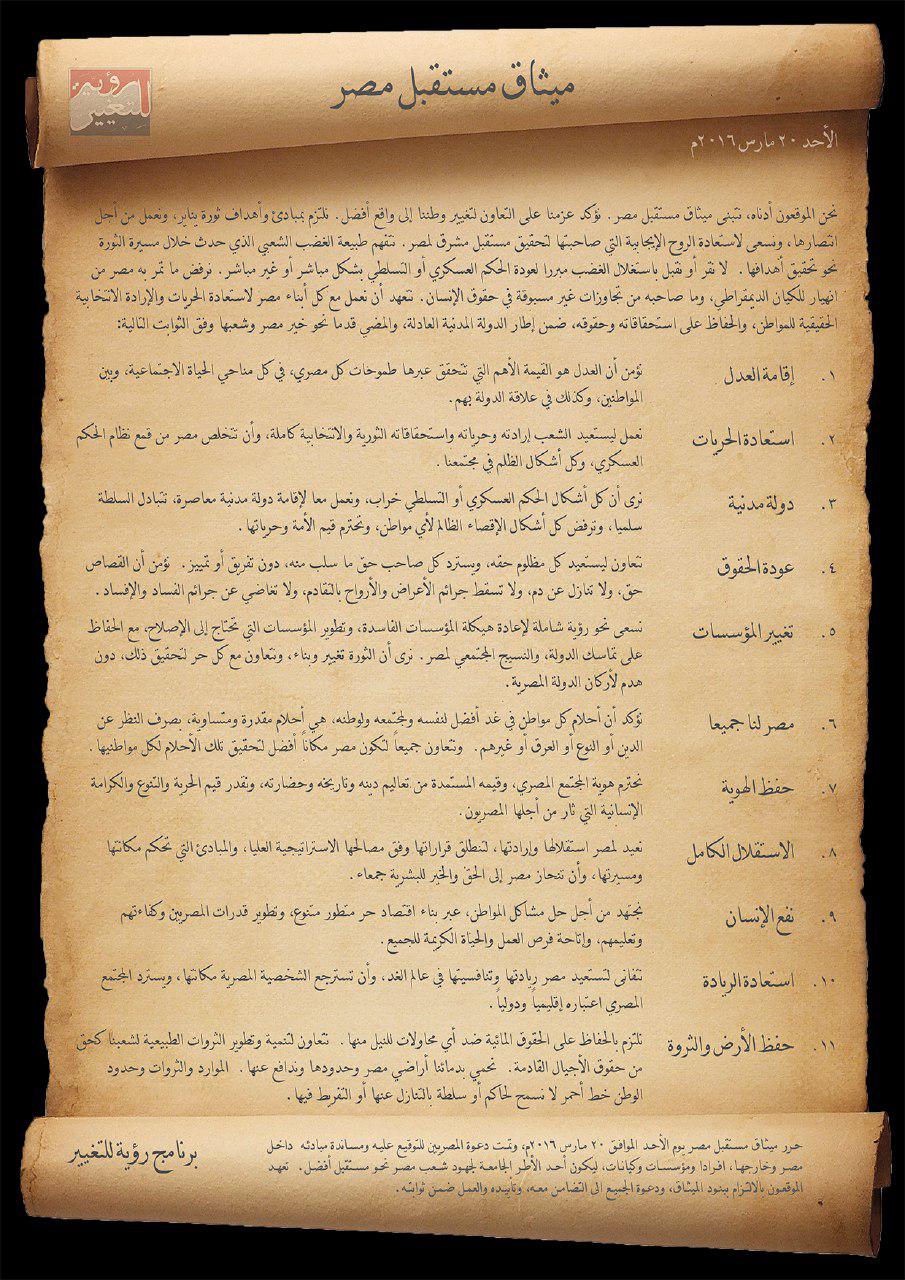 رؤية للتغيير
ميثاق مستقبل مصر
الأحد ٢٠ مارس ٢٠١٦م
نحن الموقعون أدناه، نتبنى ميثاق مستقبل مصر. نؤكد عزمنا على التعاون لتغيير وطننا إلى واقع أفضل. نلتزم بمبادئ وأهداف ثورة يناير، ونعمل من أجل
انتصارها، ونسعى لاستعادة الروح الإيجابية التي صاحبتها لتحقيق مستقبل مشرق لمصر. نتفهم طبيعة الغضب الشعبي الذي حدث خلال مسيرة الثورة
نحو تحقيق أهدافها. لا نقر أو نقبل باستغلال الغضب مبررا لعودة الحكم العسكري أو التسلطي بشكل مباشر أو غير مباشر. نرفض ما تمر به مصر من
انهيار للكيان الديمقراطي، وما صاحبه من تجاوزات غير مسبوقة في حقوق الإنسان. نتعهد أن نعمل مع كل أبناء مصر لاستعادة الحريات والإرادة الانتخابية
الحقيقية للمواطن، والحفاظ على استحقاقاته وحقوقه، ضمن إطار الدولة المدنية العادلة، والمضي قدما نحو خير مصر وشعبها وفق الثوابت التالية:
١. إقامة العدل نؤمن أن العدل هو القيمة الأهم التي نتحقق عبرها طموحات كل مصري، في كل مناحي الحياة الاجتماعية، وبين
المواطنين، وكذلك في علاقة الدولة بهم.
٢. استعادة الحريات نعمل ليستعيد الشعب إرادته وحرياته واستحقاقاته الثورية والانتخابية كاملة، وأن تتخلص مصر من قمع نظام الحكم
العسكري، وكل أشكال الظلم في مجتمعنا.
٣. دولة مدنية نرى أن كل أشكال الحكم العسكري أو التسلطي خراب، ونعمل معا لإقامة دولة مدنية معاصرة، تتبادل السلطة
سلميا، وترفض كل أشكال الإقصاء الظالم لأي مواطن، وتحترم قيم الأمة وحرياتها.
٤. عودة الحقوق نتعاون ليستعيد كل مظلوم حقه، ويسترد كل صاحب حق ما سلب منه، دون تفريق أو تمييز. نؤمن أن القصاص
حق، ولا تنازل عن دم، ولا تسقط جرائم الأعراض والأرواح بالتقادم، ولا تغاضي عن جرائم الفساد والإفساد.
٥. تغيير المؤسسات نسعى نحو رؤية شاملة لإعادة هيكلة المؤسسات الفاسدة، وتطوير المؤسسات التي تحتاج إلى الإصلاح، مع الحفاظ
على تماسك الدولة، والنسيج المجتمعي لمصر. نرى أن الثورة تغيير وبناء، ونتعاون مع كل حر لتحقيق ذلك، دون
هدم لأركان الدولة المصرية.
٦. مصر لنا جميعا نؤكد أن أحلام كل مواطن في غد أفضل لنفسه ولمجتمعه ولوطنه، هي أحلام مقدرة ومتساوية، بصرف النظر عن
الدين أو النوع أو العرق أو غيرهم. ونتعاون جميعاً لتكون مصر مكاناً أفضل لتحقيق تلك الأحلام لكل مواطنيها.
٧. حفظ الهوية نحترم هوية المجتمع المصري، وقيمه المستمدة من تعاليم دينه وتاريخه وحضارته، ونقدر قيم الحرية والتنوع والكرامة
الإنسانية التي ثار من أجلها المصريون.
٨. الاستقلال الكامل نعيد لمصر استقلالها وإرادتها، لتنطلق قراراتها وفق مصالحها الاستراتيجية العليا، والمبادئ التي تحكم مكانتها
ومسيرتها، وأن تنحاز مصر إلى الحق والخير للبشرية جمعاء.
٩. نفع الإنسان نجتهد من أجل حل مشاكل المواطن، عبر بناء اقتصاد حر متطور متنوع، وتطوير قدرات المصريين وكفاءتهم
وتعليمهم، وإتاحة فرص العمل والحياة الكريمة للجميع.
١٠. استعادة الريادة نتفانى لتستعيد مصر ريادتها وتنافسيتها في عالم الغد، وأن تسترجع الشخصية المصرية مكانتها، ويسترد المجتمع
المصري اعتباره إقليمياً ودولياً.
١١. حفظ الأرض والثروة نلتزم بالحفاظ على الحقوق المائية ضد أي محاولات للنيل منها. نتعاون لتنمية وتطوير الثروات الطبيعية لشعبنا كحق
من حقوق الأجيال القادمة. نحمي بدمائنا أراضي مصر وحدودها وندافع عنها. الموارد والثروات وحدود
الوطن خط أحمر لا نسمح لحاكم أو سلطة بالتنازل عنها أو التفريط فيها.
حرر ميثاق مستقبل مصر يوم الأحد الموافق ٢٠ مارس ٢٠١٦م، وتمت دعوة المصريين للتوقيع عليه ومساندة مبادئه داخل
مصر وخارجها، افرادا ومؤسسات وكيانات، ليكون أحد الأطر الجامعة لجهود شعب مصر نحو مستقبل أفضل. تعهد
الموقعون بالالتزام ببنود الميثاق، ودعوة الجميع الى التضامن معه، وتأييده والعمل ضمن ثوابته.
برنامج رؤية للتغيير